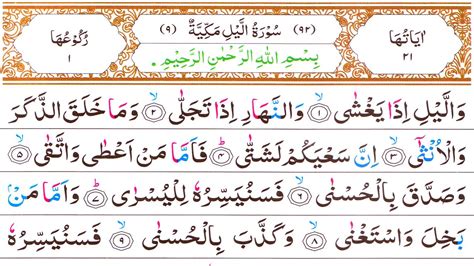 اٰيَاتُهَا ٢١ (٩٢) سُوْرَةُ الَّيْلِ مَكِّيَّةٌ (٩) رُكُوْعُهَا ١
بِسْمِ اللّٰهِ الرَّحْمٰنِ الرَّحِيْمِ
وَالَّيْلِ اِذَا يَغْشٰى ۙ‏﴿١﴾ وَالنَّهَارِ اِذَا تَجَلّٰى ۙ‏﴿٢﴾ وَمَا خَلَقَ الذَّكَرَ
وَالْاُنْثٰٓى ۙ‏﴿٣﴾ اِنَّ سَعْيَكُمْ لَشَتّٰى ؕ‏﴿٤﴾ فَاَمَّا مَنْ اَعْطٰى وَاتَّقٰى ۙ‏﴿٥﴾
وَصَدَّقَ بِالْحُسْنٰى ۙ‏﴿٦﴾ فَسَنُيَسِّرُهٗ لِلْيُسْرٰى ؕ‏﴿٧﴾ وَاَمَّا مَنْۢ
بَخِلَ وَاسْتَغْنٰى ۙ‏﴿٨﴾ وَكَذَّبَ بِالْحُسْنٰى ۙ‏﴿٩﴾ فَسَنُيَسِّرُهٗ